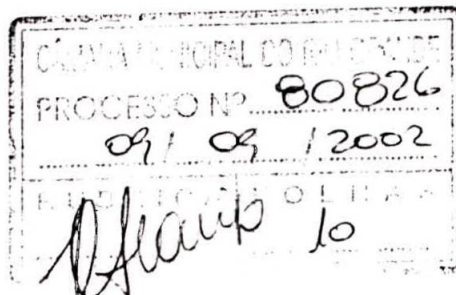 CÂMARA MUNICIPAL DO RIO GRANDE
PROCESSO Nº 80826
09 / 09 / 2002
10